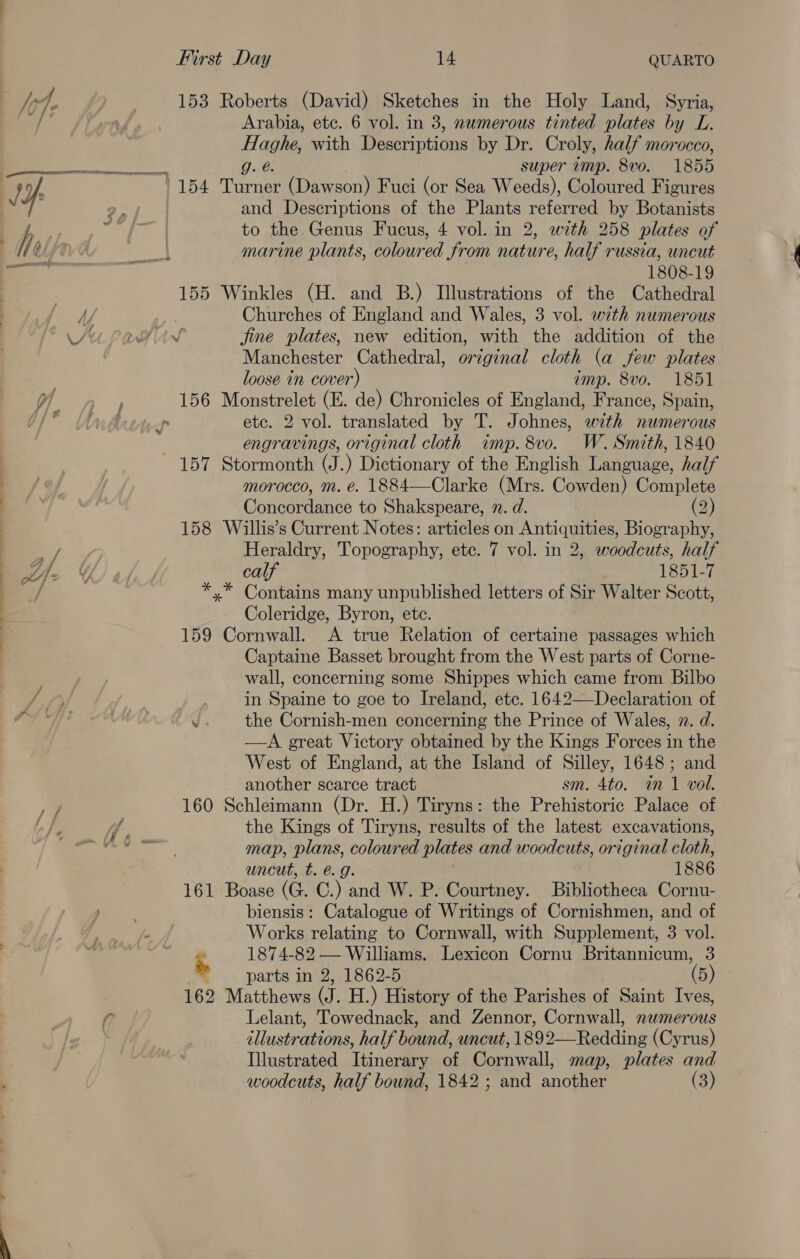 First Day 14 QUARTO
153 Roberts (David) Sketches in the Holy Land, Syria,
Arabia, etc. 6 vol. in 3, numerous tinted plates by L.
Haghe, with Descriptions by Dr. Croly, half morocco,
g. e. super imp. 8vo. 1855
154 Turner (Dawson) Fuci (or Sea Weeds), Coloured Figures
and Descriptions of the Plants referred by Botanists
to the Genus Fucus, 4 vol. in 2, with 258 plates of
marine plants, coloured from nature, half russia, uncut
1808-19
155 Winkles (H. and B.) Illustrations of the Cathedral
Churches of England and Wales, 3 vol. with numerous
fine plates, new edition, with the addition of the
Manchester Cathedral, original cloth (a few plates
loose in cover) imp. 8vo. 1851
156 Monstrelet (E. de) Chronicles of England, France, Spain,
etc. 2 vol. translated by T. Johnes, with numerous
engravings, original cloth imp. 8vo. W. Smith, 1840
157 Stormonth (J.) Dictionary of the English Language, half
morocco, m. e. 1884—Clarke (Mrs. Cowden) Complete
Concordance to Shakspeare, n. d. (2)
158 Willis's Current Notes: articles on Antiquities, Biography,
Heraldry, Topography, etc. 7 vol. in 2, woodcuts, half
calf 1851-7
*** Contains many unpublished letters of Sir Walter Scott,
Coleridge, Byron, etc.
159 Cornwall. A true Relation of certaine passages which
Captaine Basset brought from the West parts of Corne-
wall, concerning some Shippes which came from Bilbo
in Spaine to goe to Ireland, etc. 1642—Declaration of
the Cornish-men concerning the Prince of Wales, n. d.
—A great Victory obtained by the Kings Forces in the
West of England, at the Island of Silley, 1648; and
another scarce tract sm. 4to. in 1 vol.
160 Schleimann (Dr. H.) Tiryns: the Prehistoric Palace of
the Kings of Tiryns, results of the latest excavations,
map, plans, coloured plates and woodcuts, original cloth,
uncut, t. e. g. 1886
161 Boase (G. C.) and W. P. Courtney. Bibliotheca Cornu-
biensis: Catalogue of Writings of Cornishmen, and of
Works relating to Cornwall, with Supplement, 3 vol.
1874-82—Williams. Lexicon Cornu Britannicum, 3
parts in 2, 1862-5 (5)
162 Matthews (J. H.) History of the Parishes of Saint Ives,
Lelant, Towednack, and Zennor, Cornwall, numerous
illustrations, half bound, uncut, 1892—Redding (Cyrus)
Illustrated Itinerary of Cornwall, map, plates and
woodcuts, half bound, 1842; and another (3)